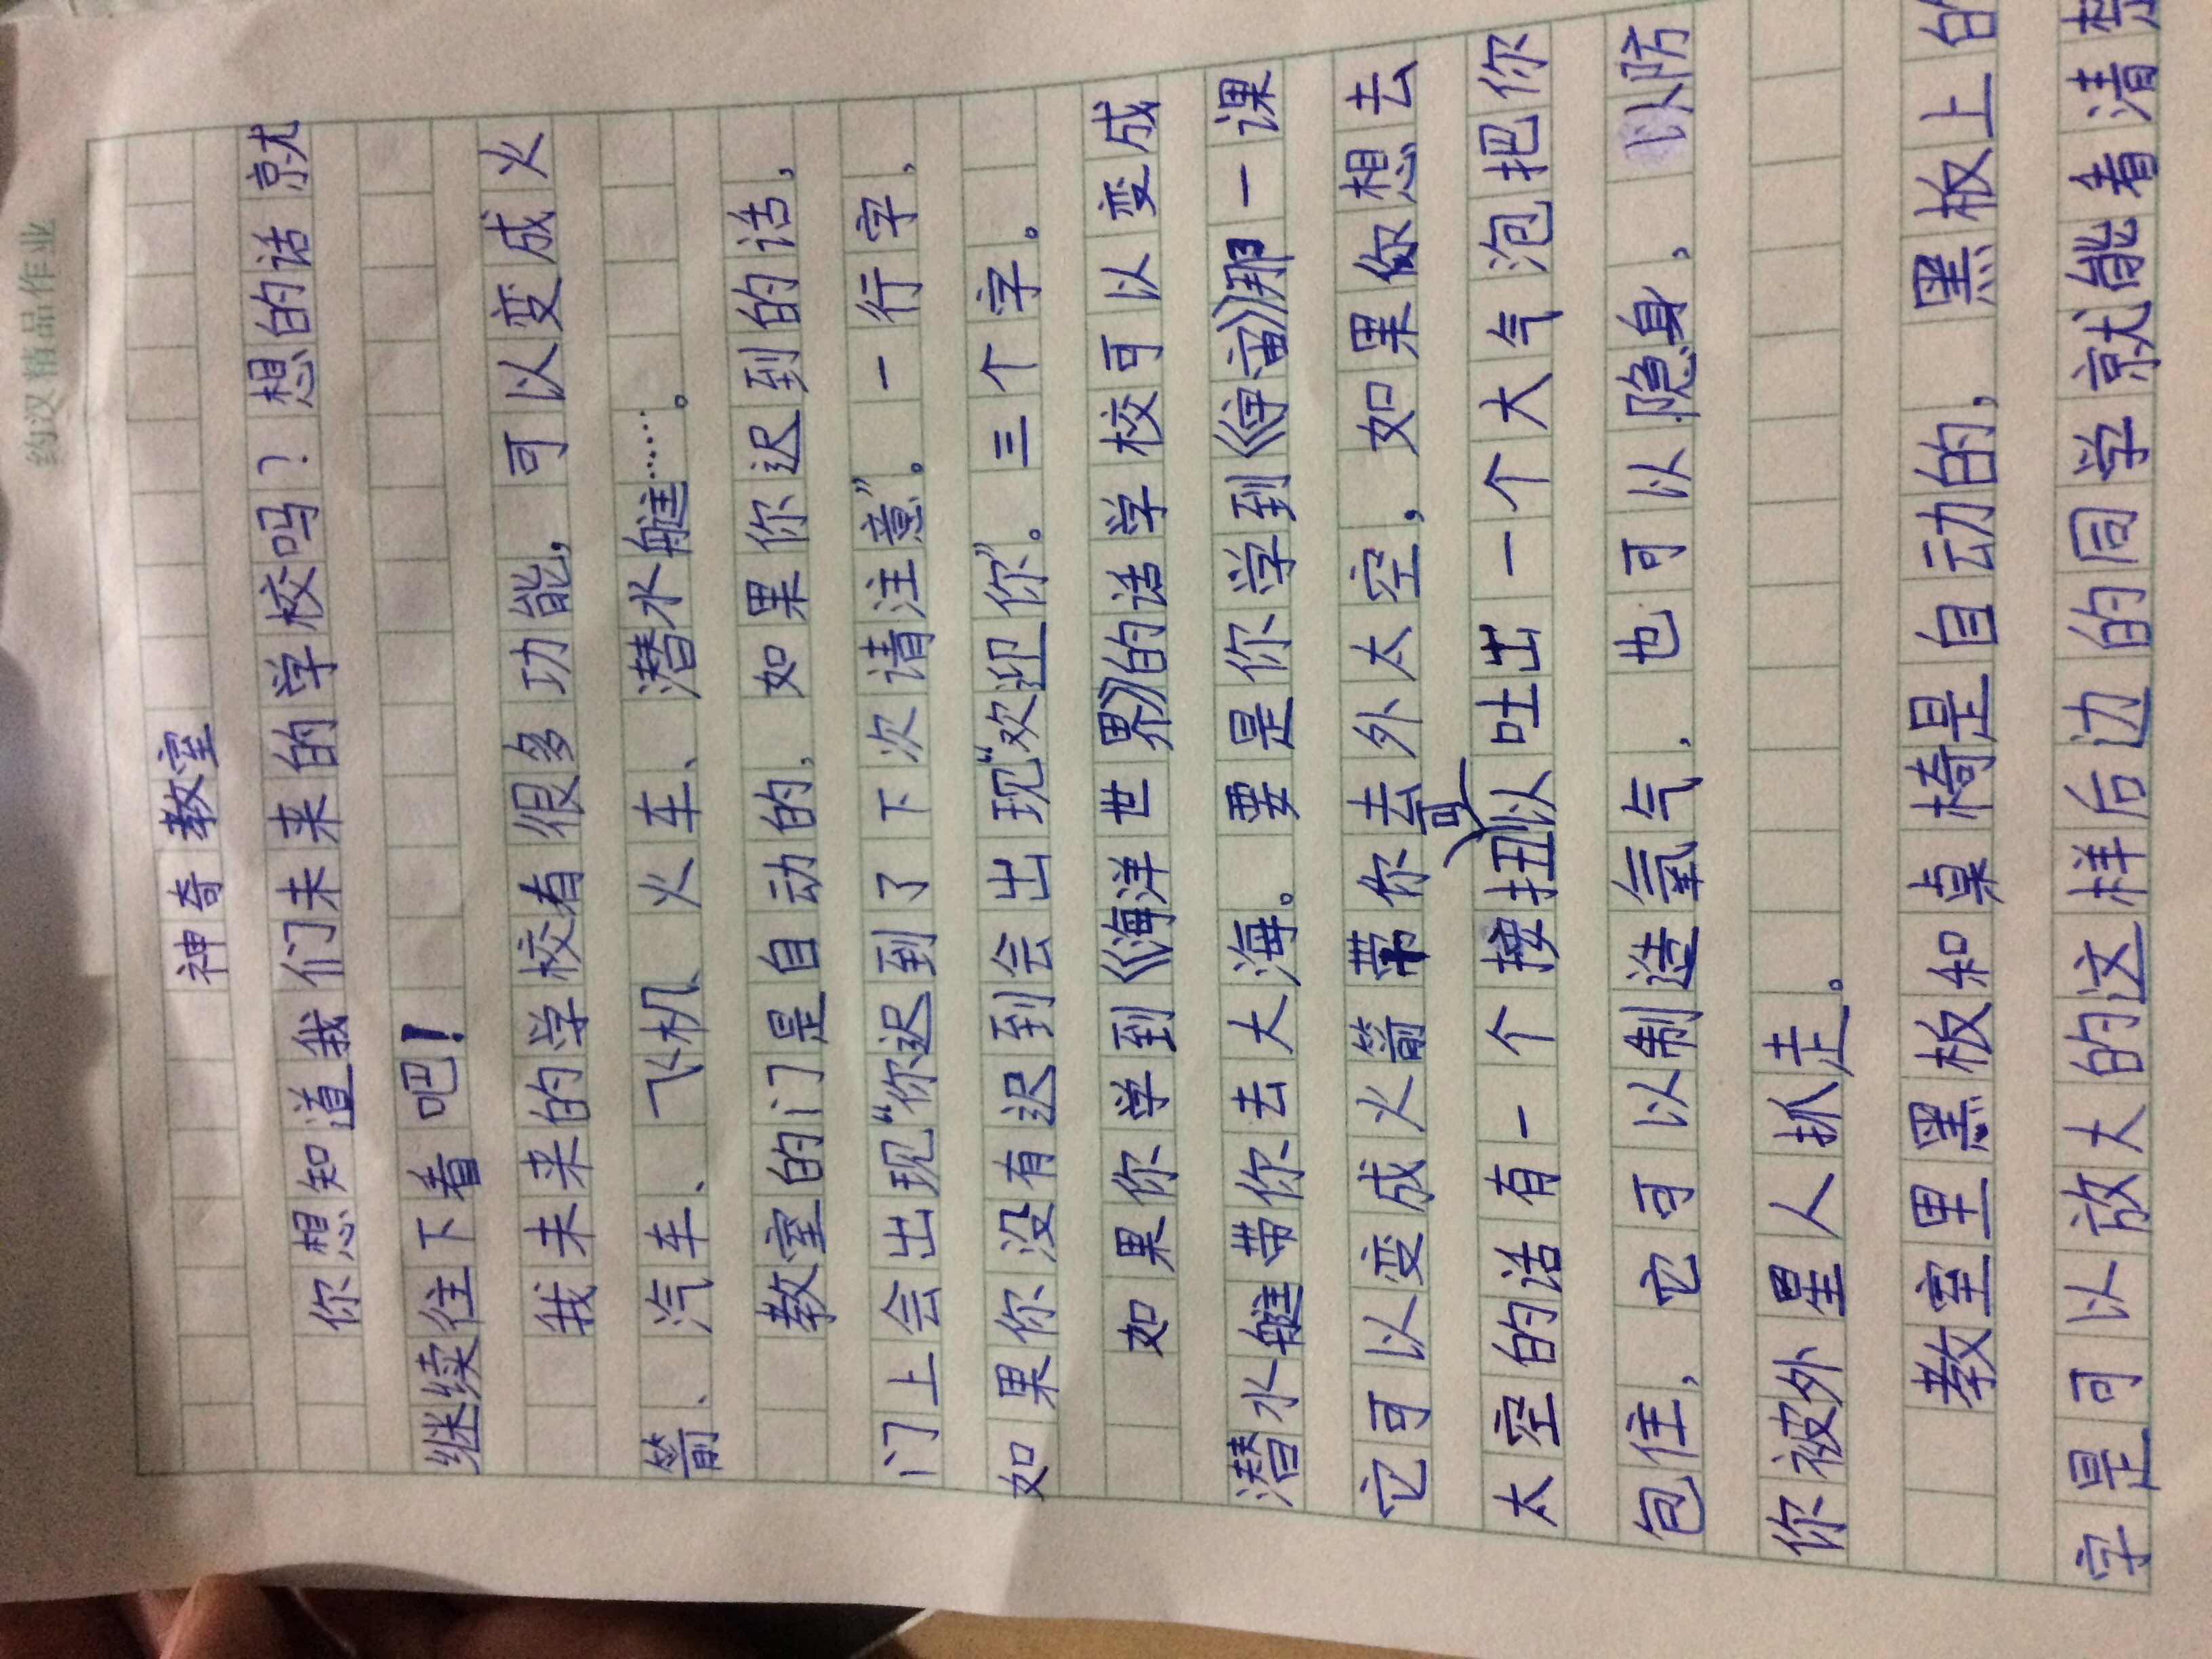 约汉精品作业
神奇教室
你想知道我们未来的学校吗？想的话就
继续往下看吧！
我未来的学校有很多功能，可以变成火
箭、汽车、飞机、火车、潜水艇……。
教室的门是自动的，如果你迟到的话，
门上会出现“你迟到了下次请注意”。一行字，
如果你没有迟到会出现“欢迎你”。三个字。
如果你学到《海洋世界》的话学校可以变成
潜水艇带你去大海。要是你学到《宇宙》那一课
它可以变成火箭带你去外太空，如果你想去
太空的话有一个按扭可以吐出一个大气泡把你
包住，它可以制造氧气，也可以隐身，以防
你被外星人抓走。
教室里黑板和桌椅是自动的，黑板上的
字是可以放大的这样后边的同学就能看清楚